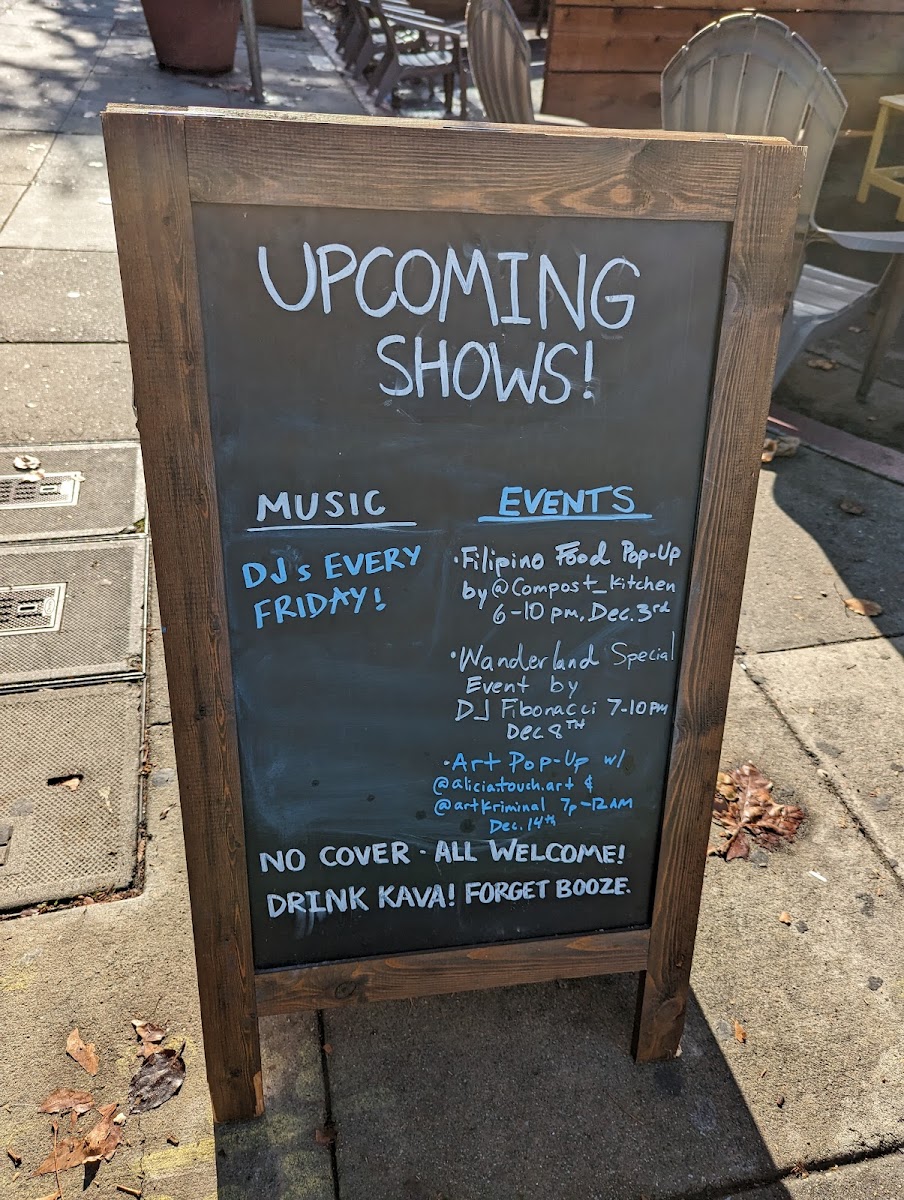 UPCOMING
SHOWS!
MUSIC
DJ's EVERY
FRIDAY!
EVENTS
·Filipino Food Pop-Up
by @Compost_Kitchen
6-10 pm, Dec. 3rd
·Wanderland Special
Event by
DJ Fibonacci 7-10PM
Dec 8TH
·Art Pop-Up w/
@aliciatouch.art &
@artkriminal 7p-12AM
Dec. 14th
NO COVER - ALL WELCOME!
DRINK KAVA! FORGET BOOZE.